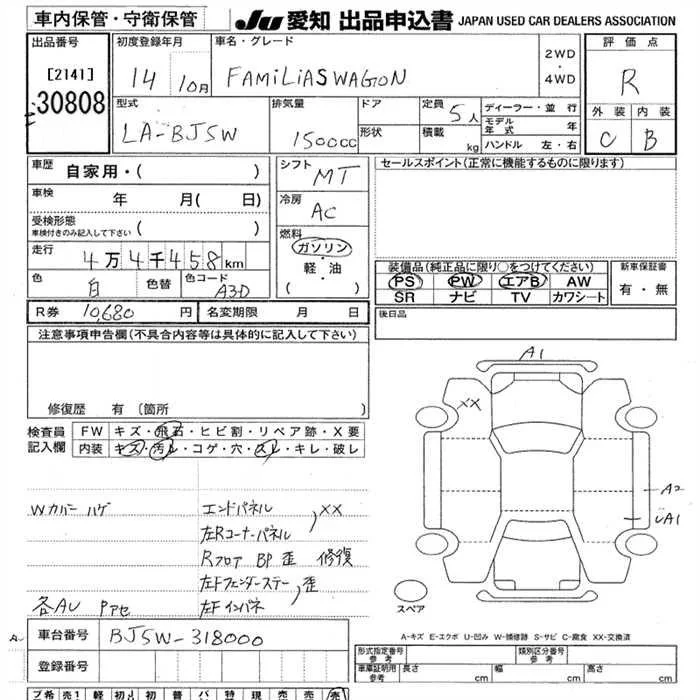 車内保管・守衛保管
JU 愛知 出品申込書 JAPAN USED CAR DEALERS ASSOCIATION
出品番号
[2141]
30808
初度登録年月
14 10月
車名・グレード
FAMiLiASWAGON
2WD
・
4WD
評価点
R
外装 内装
C B
型式
LA-BJ5W
排気量
1500cc
ドア
形状
定員 5人
積載 kg
ディーラー・並行
モデル年式 年
ハンドル 左・右
車歴 自家用・( )
車検 年 月( 日)
受検形態
車検付きのみ記入して下さい ( )
走行 4万4千458km
色 白 色替 色コード A3D
シフト MT
冷房 AC
燃料
ガソリン
・
軽・油
( )
セールスポイント(正常に機能するものに限ります)
装備品(純正品に限り○をつけてください)
PS PW エアB AW
SR ナビ TV カワシート
新車保証書
有・無
R券 10,680円 名変期限 月 日
後日品
注意事項申告欄(不具合内容等は具体的に記入して下さい)
修復歴 有(箇所 )
検査員
記入欄
FW キズ・飛石・ヒビ割・リペア跡・X要
内装 キズ・汚レ・コゲ・穴・スレ・キレ・破レ
A1
XX
A2
UA1
スペア
Wカバー ハゲ
エンドパネル
左Rコーナーパネル
XX
Rフロア BP歪 修復
左Fフェンダーステー
左Fインパネ
歪
各AU Pアセ
A-キズ E-エクボ U-凹み W-補修跡 S-サビ C-腐食 XX-交換済
車台番号 BJ5W-318000
登録番号
形式指定番号
参考
類別区分番号
参考
車庫証明用
参考
長さ cm 幅 cm 高さ cm